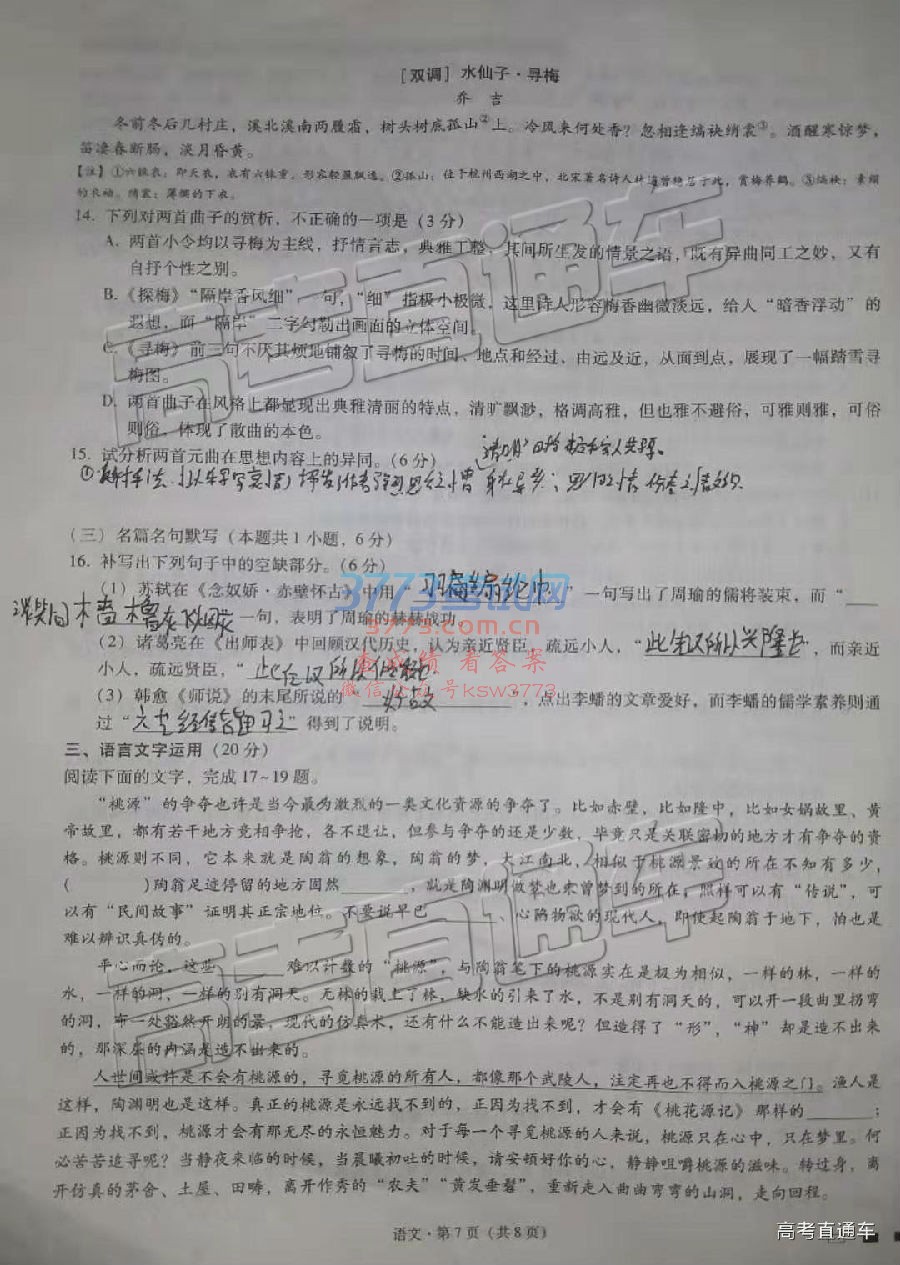 [双调] 水仙子·寻梅
乔 吉
冬前冬后几村庄，溪北溪南两履霜，树头树底孤山②上。冷风来何处香？忽相逢缟袂绡裳③。酒醒寒惊梦，
笛凄春断肠，淡月昏黄。
【注】①六铢衣：即天衣，衣有六铢重，形容轻盈飘逸。②孤山：位于杭州西湖之中，北宋著名诗人林逋曾隐居于此，赏梅养鹤。③缟袂：素绢
的衣袖。绡裳：薄绸的下衣。
14. 下列对两首曲子的赏析，不正确的一项是（3 分）
A. 两首小令均以寻梅为主线，抒情言志，典雅工整，其间所生发的情景之语，既有异曲同工之妙，又有
自抒个性之别。
B.《探梅》“隔岸香风细”一句，“细”指极小极微，这里诗人形容梅香幽微淡远，给人“暗香浮动”的
遐想，而“隔岸”二字勾勒出画面的立体空间。
C.《寻梅》前三句不厌其烦地铺叙了寻梅的时间、地点和经过，由远及近，从面到点，展现了一幅踏雪寻
梅图。
D. 两首曲子在风格上都显现出典雅清丽的特点，清旷飘渺，格调高雅，但也雅不避俗，可雅则雅，可俗
则俗，体现了散曲的本色。
15. 试分析两首元曲在思想内容上的异同。（6 分）
（三）名篇名句默写（本题共 1 小题，6 分）
16. 补写出下列句子中的空缺部分。（6 分）
（1）苏轼在《念奴娇·赤壁怀古》中用“ 羽扇纶巾 ”一句写出了周瑜的儒将装束，而“
”一句，表明了周瑜的赫赫战功。
（2）诸葛亮在《出师表》中回顾汉代历史，认为亲近贤臣，疏远小人，“ 此先汉所以兴隆也 ”，而亲近
小人，疏远贤臣，“ 此后汉所以倾颓也 ”
（3）韩愈《师说》的末尾所说的“ 好古 ”，点出李蟠的文章爱好，而李蟠的儒学素养则通
过“ 六艺经传皆通习之 ”得到了说明。
三、语言文字运用（20 分）
阅读下面的文字，完成 17~19 题。
“桃源”的争夺也许是当今最为激烈的一类文化资源的争夺了。比如赤壁，比如隆中，比如女娲故里、黄
帝故里，都有若干地方竞相争抢，各不退让，但参与争夺的还是少数，毕竟只是关联密切的地方才有争夺的资
格。桃源则不同，它本来就是陶翁的想象，陶翁的梦，大江南北，相似于桃源景致的所在不知有多少，
（ ）陶翁足迹停留的地方固然 ，就是陶渊明做梦也未曾梦到的所在，照样可以有“传说”，可
以有“民间故事”证明其正宗地位。不要说早已 、心陷物欲的现代人，即使起陶翁于地下，怕也是
难以辨识真伪的。
平心而论，这些 难以计数的“桃源”，与陶翁笔下的桃源实在是极为相似，一样的林，一样的
水，一样的洞，一样的别有洞天。无林的栽上了林，缺水的引来了水，不是别有洞天的，可以开一段曲里拐弯
的洞，布一处豁然开朗的景，现代的仿真术，还有什么不能造出来呢？但造得了“形”，“神”却是造不出来
的，那深层的内涵是造不出来的。
人世间或许是不会有桃源的，寻觅桃源的所有人，都像那个武陵人，注定再也不得而入桃源之门。渔人是
这样，陶渊明也是这样。真正的桃源是永远找不到的，正因为找不到，才会有《桃花源记》那样的 ；
正因为找不到，桃源才会有那无尽的永恒魅力。对于每一个寻觅桃源的人来说，桃源只在心中，只在梦里。何
必苦苦追寻呢？当静夜来临的时候，当晨曦初吐的时候，请安顿好你的心，静静咀嚼桃源的滋味。转过身，离
开仿真的茅舍、土屋、田畴，离开作秀的“农夫”“黄发垂髫”，重新走入曲曲弯弯的山洞，走向回程。
语文·第 7 页（共 8 页）
高考直通车
3773考试网
查成绩看答案
微信公众号ksw3773
高考直通车
高考直通车